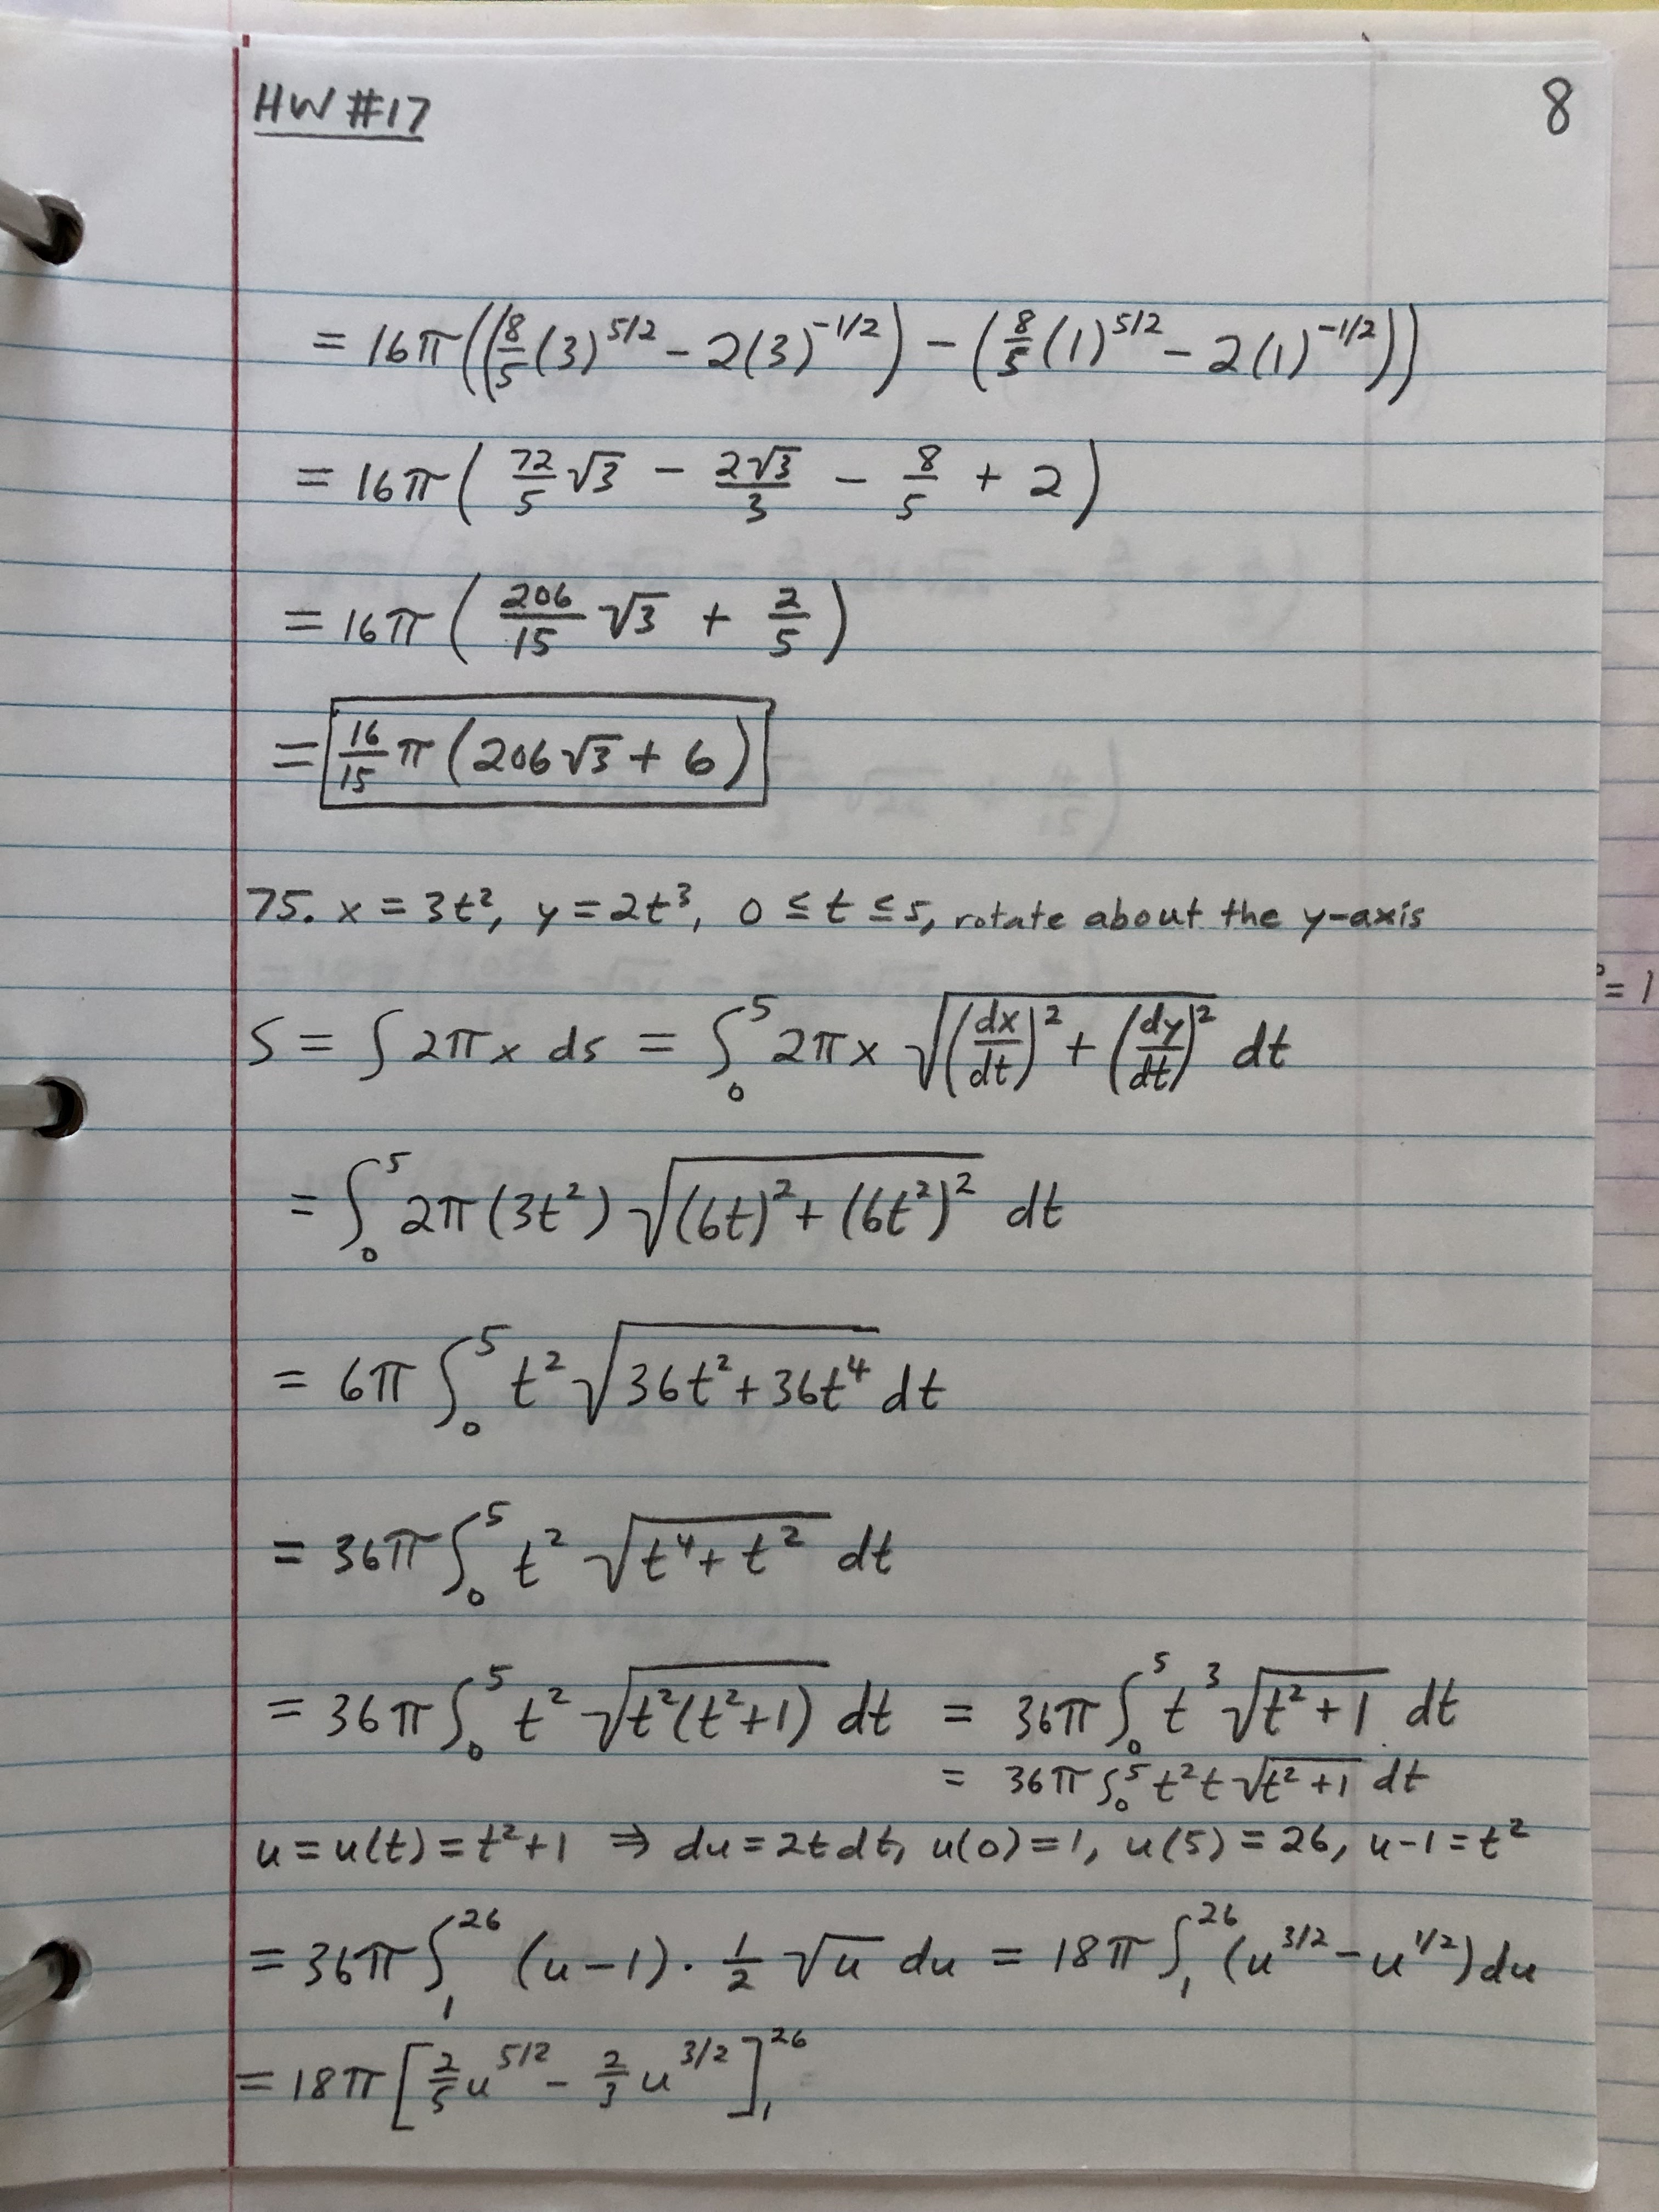 HW #17 8
= 16π((8/5 (3)^5/2 − 2(3)^−1/2) − (8/5 (1)^5/2 − 2(1)^−1/2))
= 16π(72/5 √3 − 2√3/3 − 8/5 + 2)
= 16π(206/15 √3 + 2/5)
= 16/15 π(206√3 + 6)
75. x = 3t², y = 2t³, 0 ≤ t ≤ 5, rotate about the y-axis
S = ∫ 2πx ds = ∫₀⁵ 2πx √((dx/dt)² + (dy/dt)²) dt
= ∫₀⁵ 2π(3t²) √((6t)² + (6t²)²) dt
= 6π ∫₀⁵ t² √(36t² + 36t⁴) dt
= 36π ∫₀⁵ t² √(t⁴ + t²) dt
= 36π ∫₀⁵ t² √(t²(t²+1)) dt = 36π ∫₀⁵ t³ √(t²+1) dt
= 36π ∫₀⁵ t² t √(t²+1) dt
u = u(t) = t²+1 ⇒ du = 2t dt, u(0) = 1, u(5) = 26, u−1 = t²
= 36π ∫₁²⁶ (u−1) · 1/2 √u du = 18π ∫₁²⁶ (u^3/2 − u^1/2) du
= 18π [2/5 u^5/2 − 2/3 u^3/2]₁²⁶